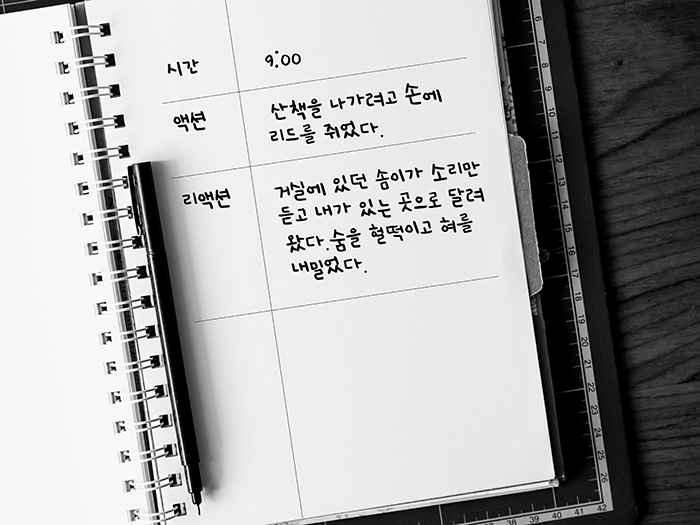 시간 9:00
액션 산책을 나가려고 손에
리드를 쥐었다.
리액션 거실에 있던 솜이가 소리만
듣고 내가 있는 곳으로 달려
왔다. 숨을 헐떡이고 혀를
내밀었다.
6
7
8
9
10
11
12
13
14
15
16
17
18
19
20
21
22
23
24
25
26
36 37 38 39 40 41 42